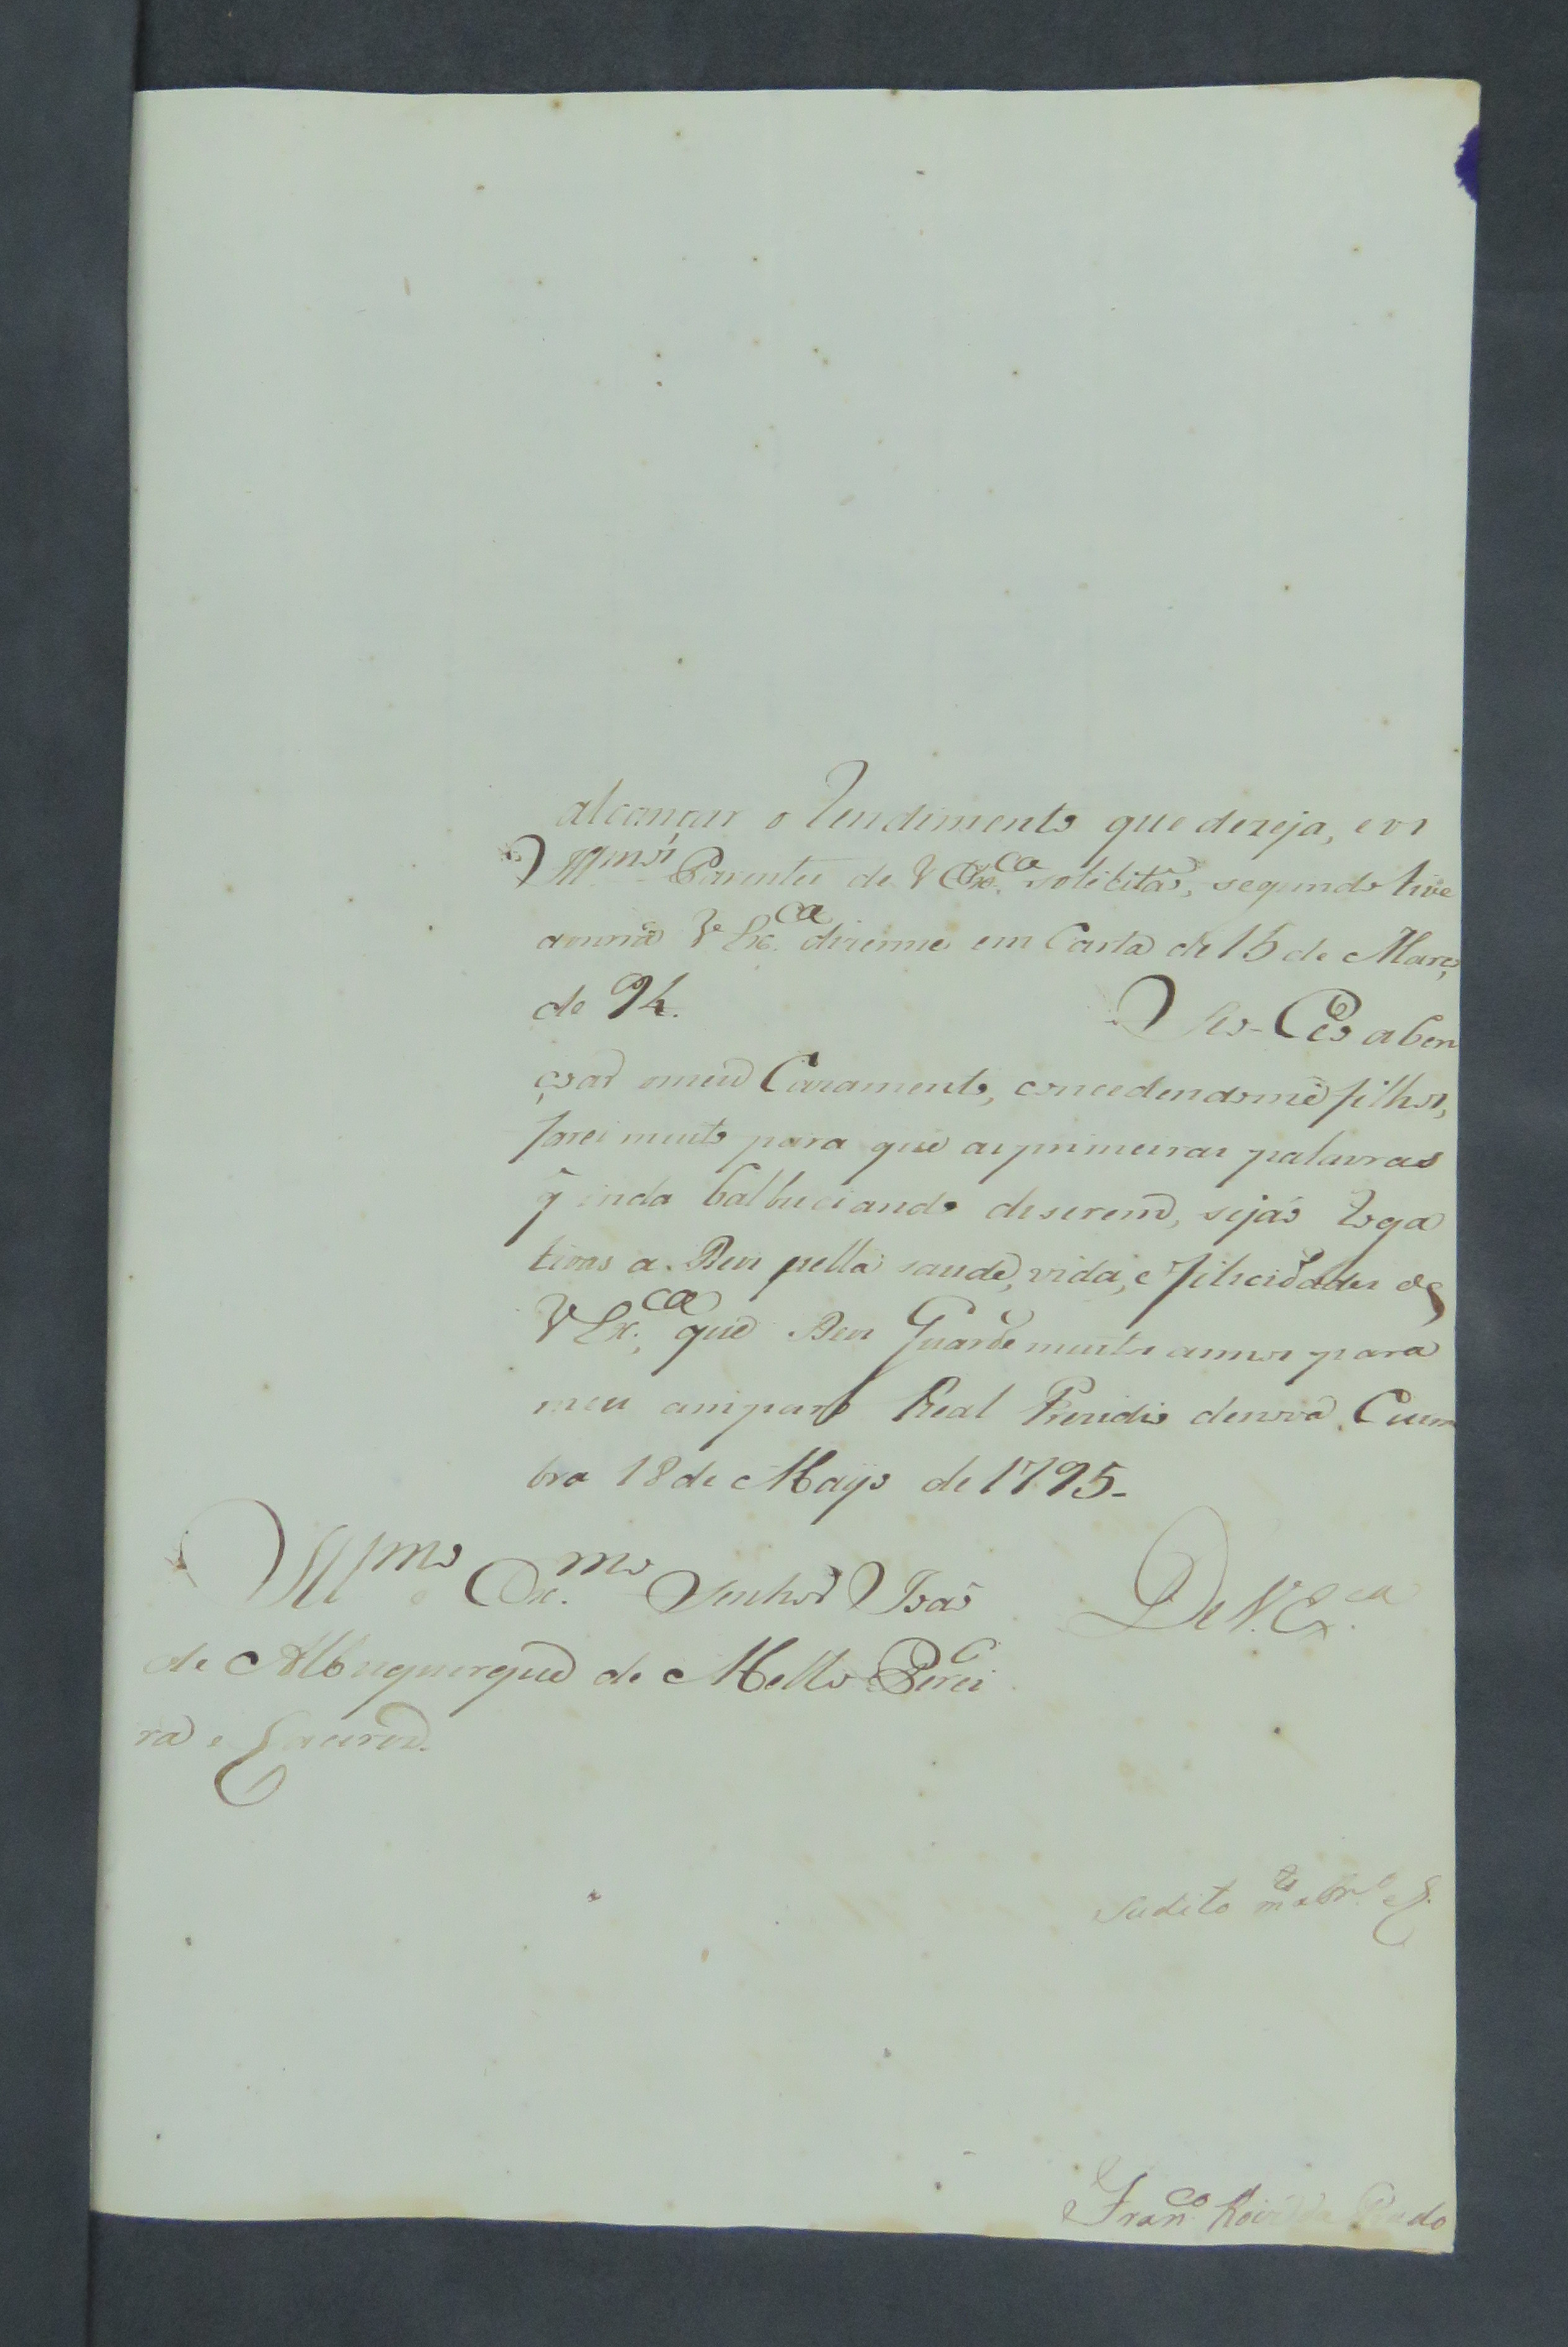 alcançar o Rendimento que dezeja, e os
Illmos Parentes de VExca solicitaõ, segundo tive
a honra VExca dizerme em Carta de 15 de Março
de 94.
Se o Ceo aben
çoar o meu Cazamento, concedendome filhos,
farei muito para que as primeiras palavras
q̃ inda balbuciando diserem, sejaõ Roga
tivas a Deus pella saude, vida, e felicidades de
VExca, que Deus Guarde muitos annos para
meu amparo Real Prezidio de nova Coim
bra 18 de Mayo de 1795-
Illmo e Exmo Senhor Joaõ
De V. Exca
de Albuquerque de Mello Perei
ra e Caceres.
Sudito mto obro
Franco Roiz do Prado